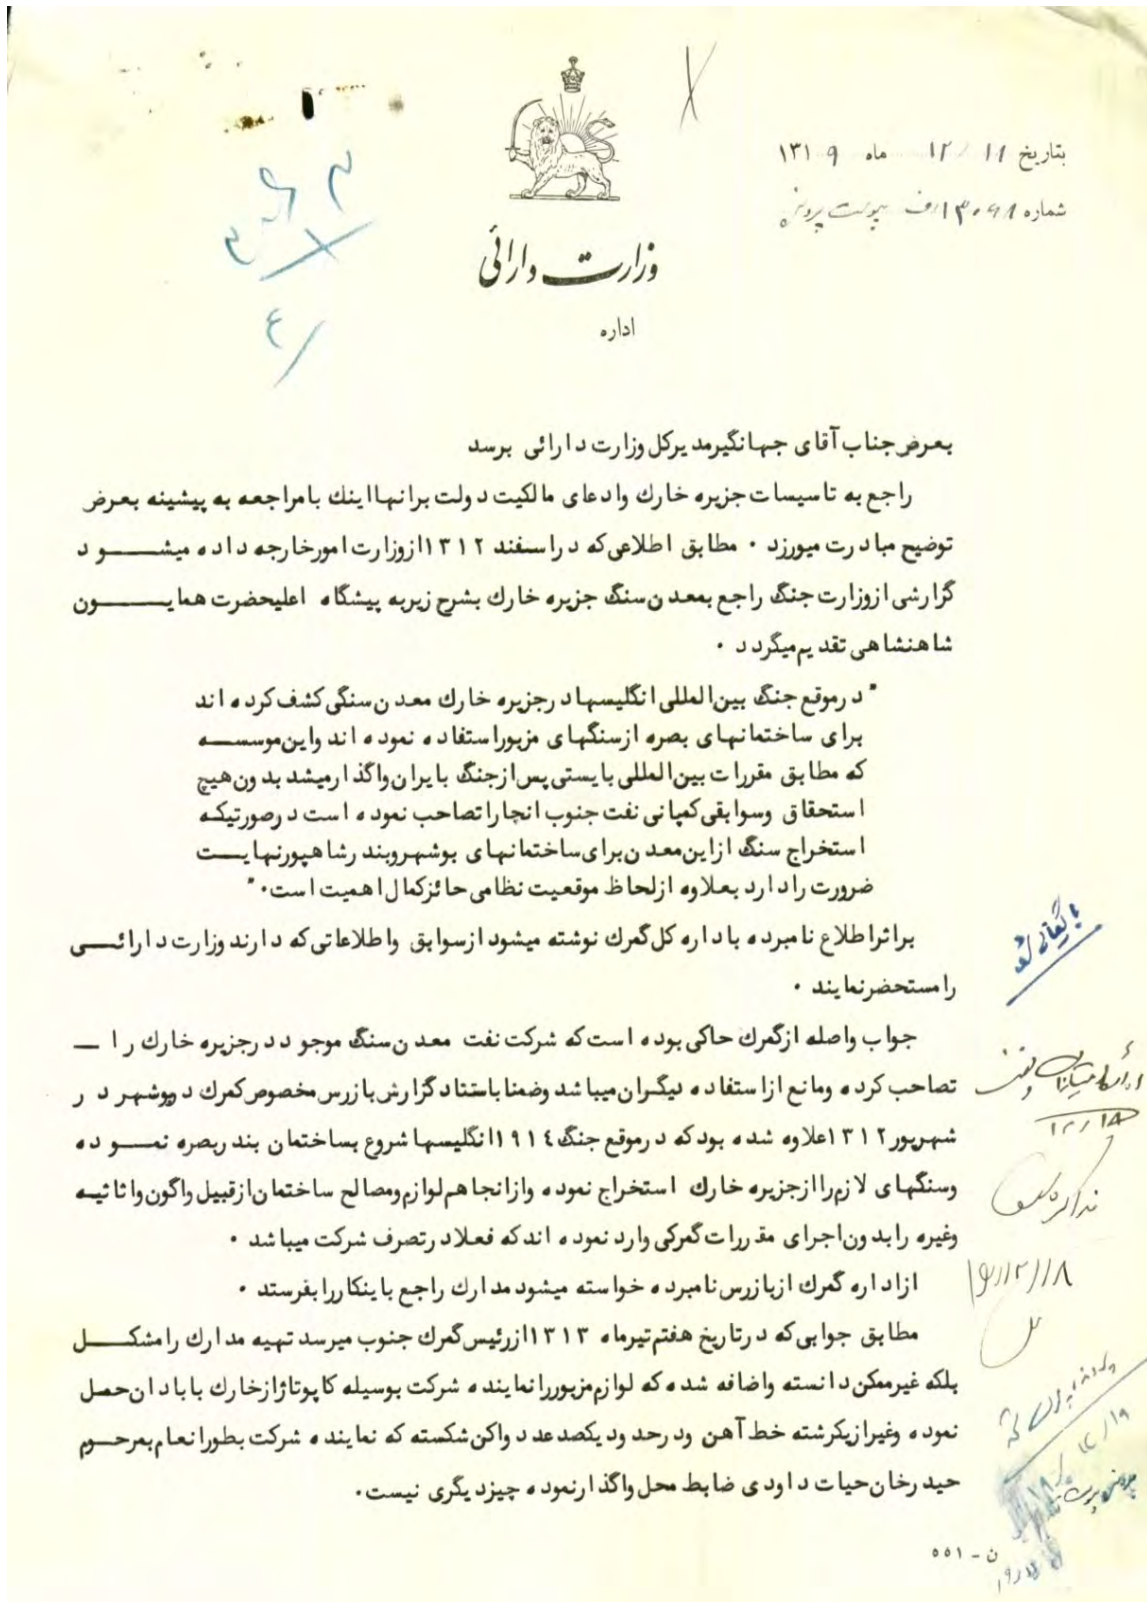 بتاریخ ۱۸ / ۱۲ ماه ۱۳۱۹
شماره ۱۳۰۶۸
وزارت دارائی
اداره
بعرض جناب آقای جهانگیر مدیر کل وزارت دارائی برسد
راجع به تاسیسات جزیره خارك وادعای مالکیت دولت برانها اینك بامراجعه به پیشینه بعرض
توضیح مبادرت میورزد ۰ مطابق اطلاعی که دراسفند ۱۳۱۲ ازوزارت امورخارجه داده میشـــود
گزارشی ازوزارت جنگ راجع بمعدن سنگ جزیره خارك بشرح زیربه پیشگاه اعلیحضرت همایـــون
شاهنشاهی تقدیم میگردد ۰
" درموقع جنگ بین المللی انگلیسها درجزیره خارك معدن سنگی کشف کرده اند
برای ساختمانهای بصره ازسنگهای مزبوراستفاده نموده اند واین موسسـه
که مطابق مقررات بین المللی بایستی پس ازجنگ بایران واگذارمیشد بدون هیچ
استحقاق وسوابقی کمپانی نفت جنوب انجاراتصاحب نموده است درصورتیکـه
استخراج سنگ ازاین معدن برای ساختمانهای بوشهروبندرشاهپورنهایـت
ضرورت رادارد بعلاوه ازلحاظ موقعیت نظامی حائزکمال اهمیت است۰"
براثراطلاع نامبرده باداره کل گمرك نوشته میشود ازسوابق واطلاعاتی که دارند وزارت دارائــی
رامستحضرنمایند ۰
جواب واصله ازگمرك حاکی بوده است که شرکت نفت معدن سنگ موجود درجزیره خارك را ــ
تصاحب کرده ومانع ازاستفاده دیگران میباشد وضمنا باستناد گزارش بازرس مخصوص گمرك دربوشهر در
شهریور۱۳۱۲ علاوه شده بود که درموقع جنگ ۱۹۱٤ انگلیسها شروع بساختمان بندربصره نمــوده
وسنگهای لازم راازجزیره خارك استخراج نموده وازانجا هم لوازم ومصالح ساختمان ازقبیل واگون واثاثیـه
وغیره رابدون اجرای مقررات گمرکی وارد نموده اند که فعلا درتصرف شرکت میباشد ۰
ازاداره گمرك ازبازرس نامبرده خواسته میشود مدارك راجع باینکاررابفرستد ۰
مطابق جوابی که درتاریخ هفتم تیرماه ۱۳۱۳ ازرئیس گمرك جنوب میرسد تهیه مدارك رامشکـل
بلکه غیرممکن دانسته واضافه شده که لوازم مزبوررانماینده شرکت بوسیله کاپوتاژازخارك بابادان حمل
نموده وغیرازیکرشته خط آهن ودرحدود یکصدعدد واکن شکسته که نماینده شرکت بطورانعام بمرحـوم
حیدرخان حیات داودی ضابط محل واگذارنموده چیزدیگری نیست۰
ن - ٥٥۱